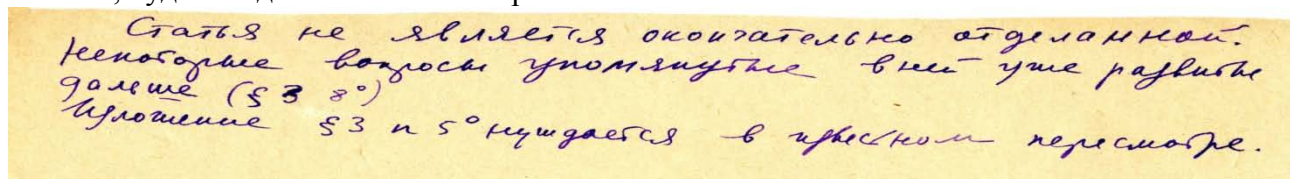 Статья не является окончательно отделанной.
Некоторые вопросы упомянутые в ней уже развиты
дальше (§ 3 8°)
Изложение §3 п 5° нуждается в известном пересмотре.